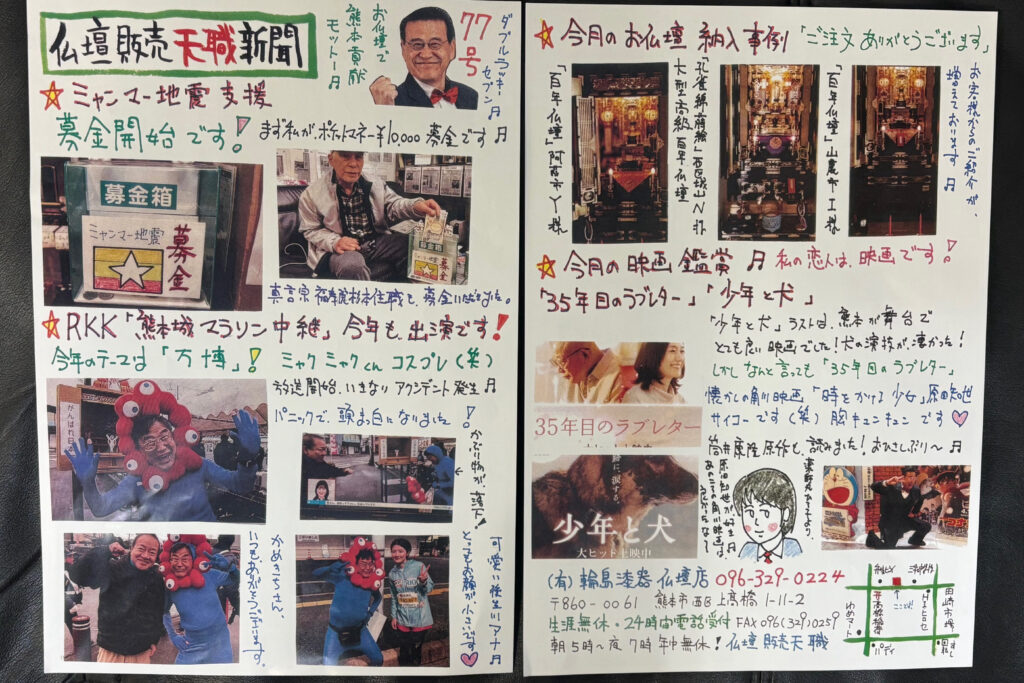 仏壇販売天職新聞
お仏壇で
熊本貢献
モットー♬
77号
ダブルラッキー
セブン♬
☆ミャンマー地震支援
募金開始です!
まず私がポケットマネー¥10,000募金です♬
募金箱
ミャンマー地震
募金
募金箱
募金
☆RKK「熊本城マラソン中継」今年も出演です!
今年のテーマは「万博」!
ミャクミャクくん コスプレ(笑)
放送開始、いきなりアクシデント発生♬
パニックで、頭ま白になりました!
かぶり物が、落下!
がんばれ
かめきちさん、
いつもありがとうございます♬
可愛い後生川アナ♬
とってもお顔が小さいです♡
☆今月のお仏壇納入事例「ご注文ありがとうございます」
お客様からのご紹介が、
増えております♬
「百年仏壇」山鹿市I様
「孔雀錦高蒔絵」西区城山N様
大型高級百年仏壇
「百年仏壇」阿蘇市Y様
☆今月の映画鑑賞♬ 私の恋人は、映画です!
「35年目のラブレター」「少年と犬」
「少年と犬」ラストは、熊本が舞台で
とても良い映画でした!犬の演技が、凄かった!
しかしなんと言っても「35年目のラブレター」
懐かしの角川映画「時をかける少女」原田知世
サイコーです(笑)胸キュンキュンです♡
筒井康隆原作も、読みました!おひさしぶり〜♬
35年目のラブレター
跡に、涙する。
少年と犬
大ヒット上映中
原田知世が好き♬
(有)輪島漆器仏壇店 096-329-0224
〒860-0061 熊本市西区上高橋1-11-2
生涯無休・24時間電話受付 FAX096(329)0259
朝5時〜夜7時年中無休!仏壇販売天職
ここだよ!
高橋橋
ゆめマート
田崎市場